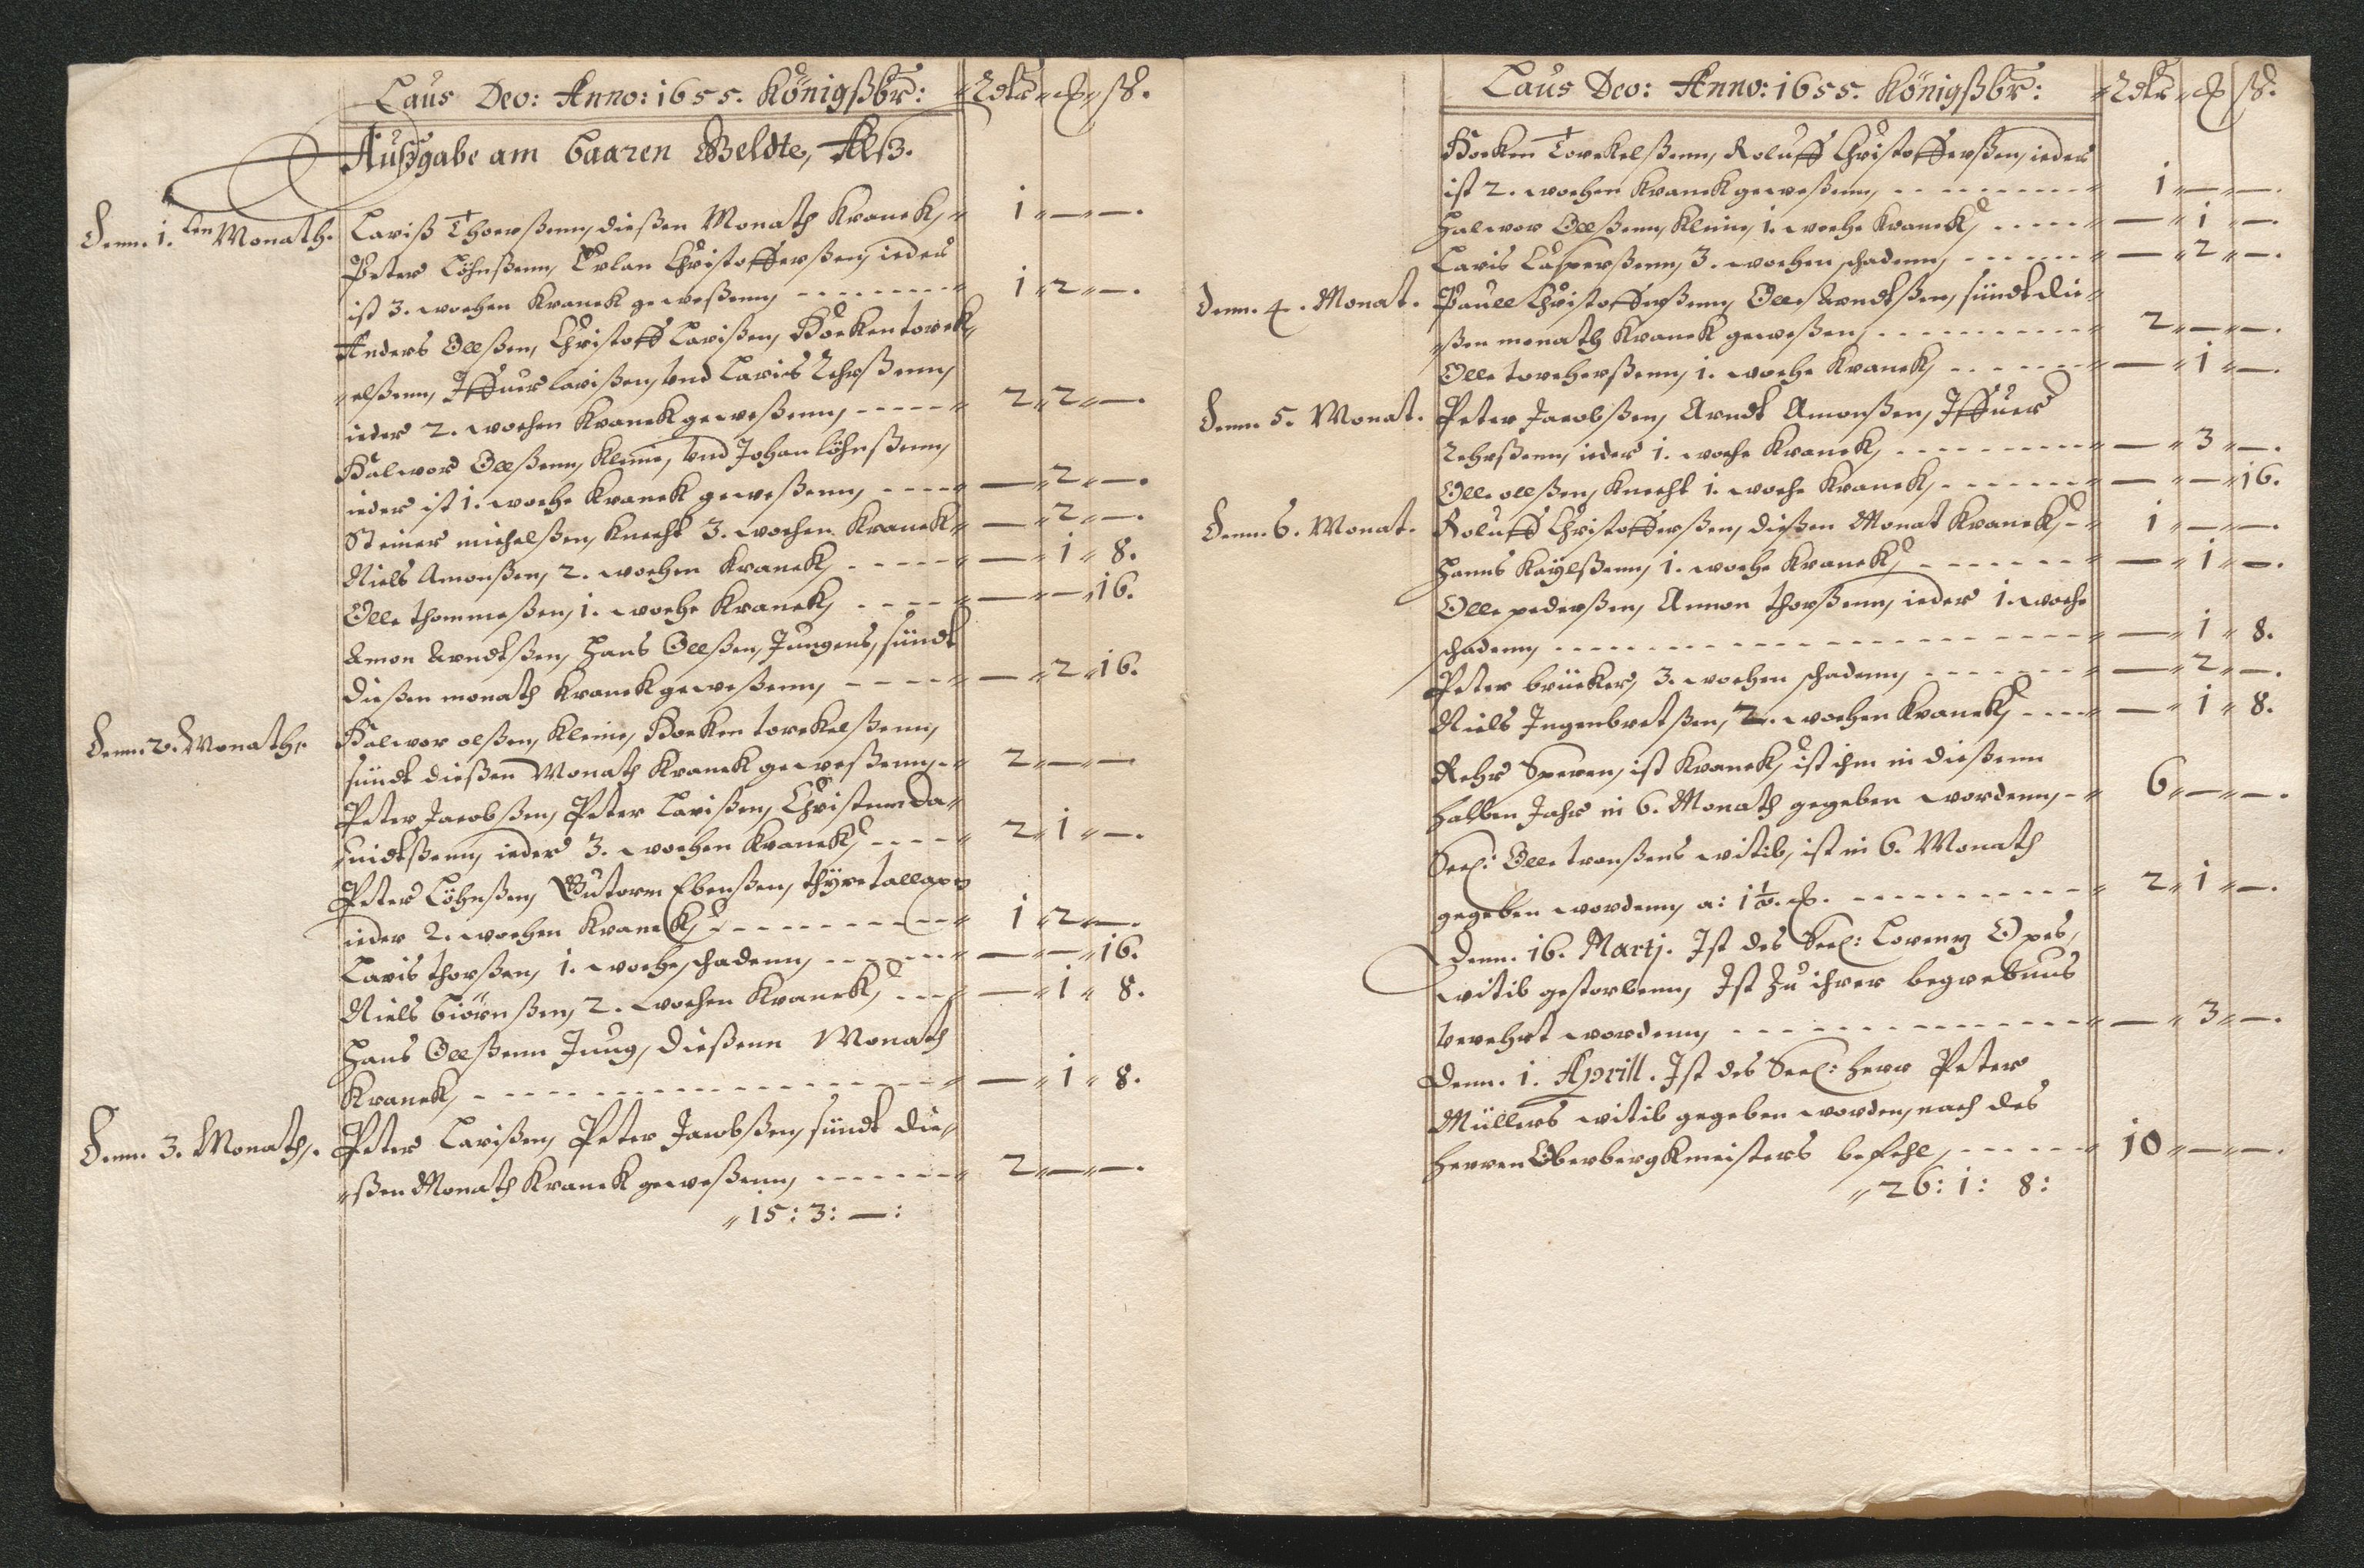 Laus Deo: Anno: 1655. Königßbr: Rdtr ß.
Außgabe am baaren Geldte, Alß.
Denn. 1.ten Monath. Lariß Thorßenn, dießen Monath Kranck, 1 — —.
Peter Löhnßenn, Erlan Christofferßen, ieder
ist 3. wochen Kranck geweßenn, 1 2 —.
Anders Ollßen, Christoff Larißen, Hocken torck-
elßenn, Iffuer larißen, vnd Laries Rehrßenn,
ieder 2. wochen Kranck geweßenn, 2 2 —.
Halwor Ollßenn, Kleine, vnd Johan löhnßenn,
ieder ist 1. woche Kranck geweßenn, — 2 —.
Steiner michelßen, Knecht 3. wochen Kranck — 2 —.
Niels Amonßen, 2. wochen Kranck, — 1 8.
Olle thommeßen, 1. woche Kranck, — — 16.
Amon Arndtßen, Hans Ollßen, Jungens, sündt
dießen monath Kranck geweßenn, — 2 16.
Denn. 2. Monath. Halwor olßen, Kleine, Hocken torckelßenn,
sündt dießen Monath Kranck geweßenn, 2 — —
Peter Jacobßen, Peter Larißen, Christenn Da-
uidtßenn, ieder 3. wochen Kranck, 2 1 —.
Peter Löhnßen, Gutorm Ebenßen, thyretallaxß
ieder 2. wochen Kranck, 1 2 —.
Laris thorßen, 1. woche, schadenn, — — 16.
Niels biörnßen, 2. wochen Kranck, — 1 8.
Hans Ollßenn Jung, dießenn Monath
Kranck, — 1 8.
Denn. 3. Monath. Peter Larißen, Peter Jacobßen, sündt die-
ßen Monath Kranck geweßenn, 2 — —.
15: 3: —:
Laus Deo: Anno: 1655. Königßbr: Rdtr ß.
Hocken Torckelßenn, Roluff Christofferßen, ieder
ist 2. wochen Kranck geweßenn, 1 — —.
Halwor Ollßenn, Kleine, 1. woche Kranck, — 1 —.
Laris Casperßenn, 3. wochen schadenn, — 2 —.
Denn. 4. Monat. Pauell Christofferßenn, Olle Arndtßen, sündt die-
ßen monath Kranck geweßen, 2 — —.
Olle torcherßenn, 1. woche Kranck, — 1 —.
Denn. 5. Monat. Peter Jacobßen, Arndt Amonßen, Iffuer
Rehrßenn, ieder 1. woche Kranck, — 3 —.
Olle ollßen, Knecht 1. woche Kranck, — — 16.
Denn. 6. Monat. Roluff Christofferßen, dießen Monat Kranck, 1 — —.
Hanns Kaylßenn, 1. woche Kranck, — 1 —.
Olle pederßen, Ammon thorßenn, ieder 1. woche
schadenn, — 1 8.
Peter brücker, 3. wochen schadenn, — 2 —.
Niels Ingenbretßen, 2. wochen Kranck, — 1 8.
Rehr Speren, ist Kranck, ist ihm in dießenn
halben Jahr in 6. Monath gegeben wordenn, 6 — —.
Seel: Olle tronßens witib, ist in 6. Monath
gegeben wordenn, a: 1½ 2 1 —.
Denn. 16. Martj. Ist des Seel: Lorentz Opes,
witib gestorbenn, Ist zu ihrer begrebnus
verehrt wordenn, — 3 —.
Denn. 1. Aprill. Ist des Seel: herr Peter
Müllers witib gegeben worden, nach des
herren Oberbergkmeisters befehl, 10 — —.
26: 1: 8: